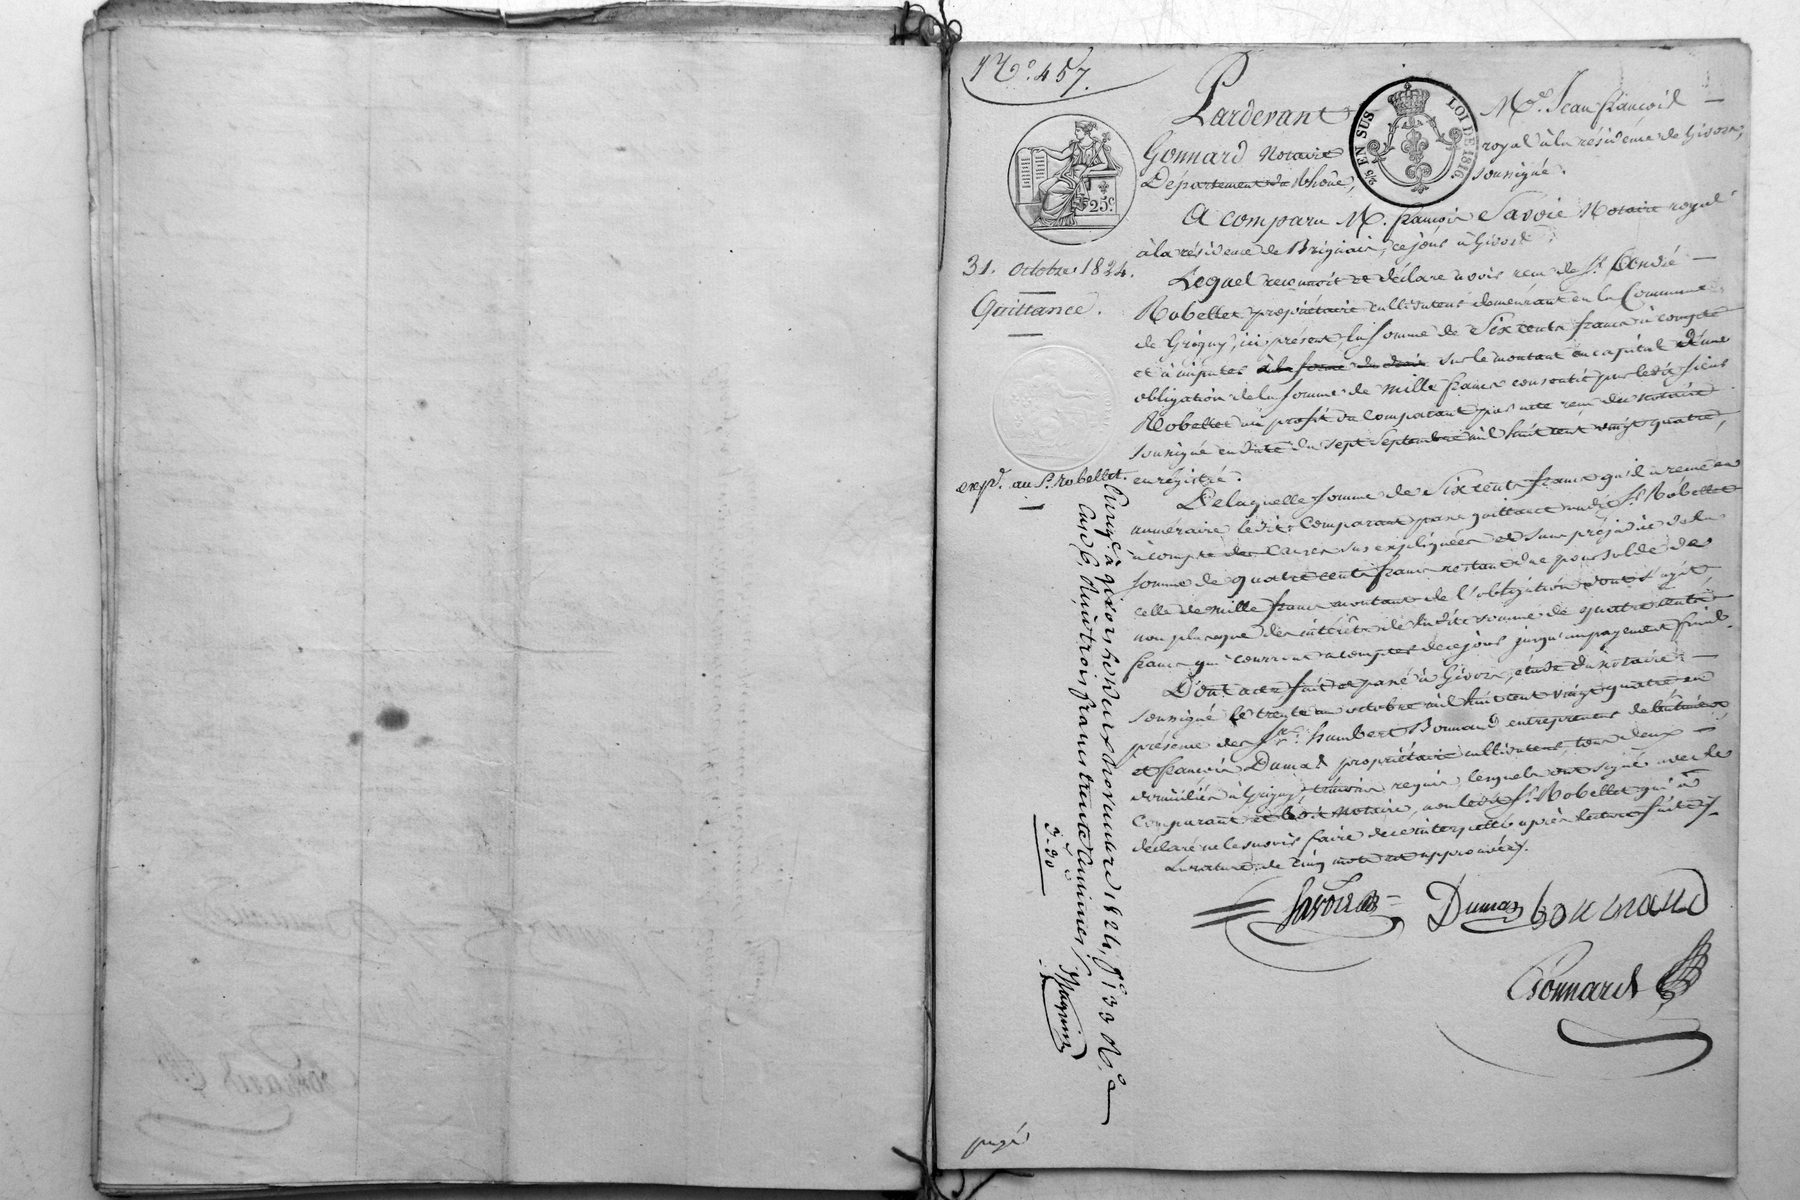 N.º 457.
Pardevant Mtre. Jean françois
Gonnard Notaire royal à la résidence de Givors,
Département du Rhône, soussigné.
2/5 EN SUS
LOI DE 1816
25.c
A comparu M. françois Savoie Notaire royal
à la résidence de Brignais, ce jour à Givors
31. octobre 1824.
Quittance.
Lequel reconnoit et déclare avoir reçu de Sr.
Robellet propriétaire cultivateur demeurant en la Commune
de Grigny, ici présent, la somme de Six cents francs à compte
et à imputer à la forme du droit sur le montant en capital d'une
obligation de la somme de mille francs consentie par ledit sieur
Robellet au profit du comparant par acte reçu du notaire
soussigné en date du sept Septembre mil huit cent vingt quatre,
enregistré.
expd. au Sr. robellet.
De laquelle somme de Six cents francs qu'il a reçue en
numéraire ledit Comparant passe quittance audit Sr. Robellet
à compte des causes sus expliquées et sans préjudice de la
somme de quatre cents francs restant due pour solde de
celle de mille francs montant de l'obligation dont s'agit
non plus que des intérêts de ladite somme de quatre cents
francs qui courront à compter de ce jour jusqu'au payement final.
Dont acte fait et passé à Givors, étude du notaire
soussigné le trente un octobre mil huit cent vingt quatre en
présence des Srs. humbert Bonnand entrepreneur de bâtimens
et françois Dumas propriétaire cultivateur, tous deux
domiciliés à Grigny, témoins requis lesquels ont signé avec le
comparant et ledit Notaire, non ledit Sr. Robellet qui a
déclaré ne le savoir faire de ce interpellé après lecture faite,
La rature de cinq mots est approuvée.
Savoie Dumas bonnand
Gonnard
Enregé. à givors le deux novembre 1824, fo. 133 Ro.
Case 6, Reçu trois francs trente centimes,
3-30